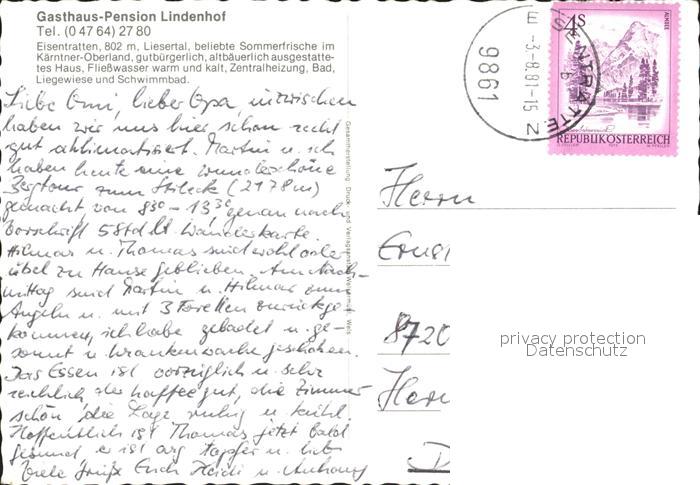 Gasthaus-Pension Lindenhof
Tel. (0 47 64) 27 80
Eisentratten, 802 m, Liesertal, beliebte Sommerfrische im
Kärntner-Oberland, gutbürgerlich, altbäuerlich ausgestatte-
tes Haus, Fließwasser warm und kalt, Zentralheizung, Bad,
Liegewiese und Schwimmbad.
Liebe Omi, lieber Opa, inzwischen
haben wir uns hier schon recht
gut akklimatisiert. Martin u. ich
haben heute eine wunderschöne
Bergtour zum Stileck (2178m)
gemacht, von 8³⁰ - 13³⁰, genau nach
Vorschrift 5 Std lt. Wanderkarte.
Hilmar u. Thomas sind wohl oder
übel zu Hause geblieben. Am Nach-
mittag sind Martin u. Hilmar zum
Angeln u. mit 3 Forellen zurückge-
kommen, ich habe gebadet u. ge-
sonnt u. Krankenwache geschoben.
Das Essen ist vorzüglich u. sehr
reichlich, der Kaffee gut, die Zimmer
schön, die Lage ruhig u. kühl.
Hoffentlich ist Thomas jetzt bald
gesund, er ist arg tapfer u. lieb.
Viele Grüße Euch Heidi u. Anhang
Gesamtherstellung: Druck- und Verlagsanstalt
EISENTRATTEN
-3.-8.81-15
9861
4 S
ALMSEE
REPUBLIK ÖSTERREICH
Herrn
Ernst
8720
Herrn
D
privacy protection
Datenschutz